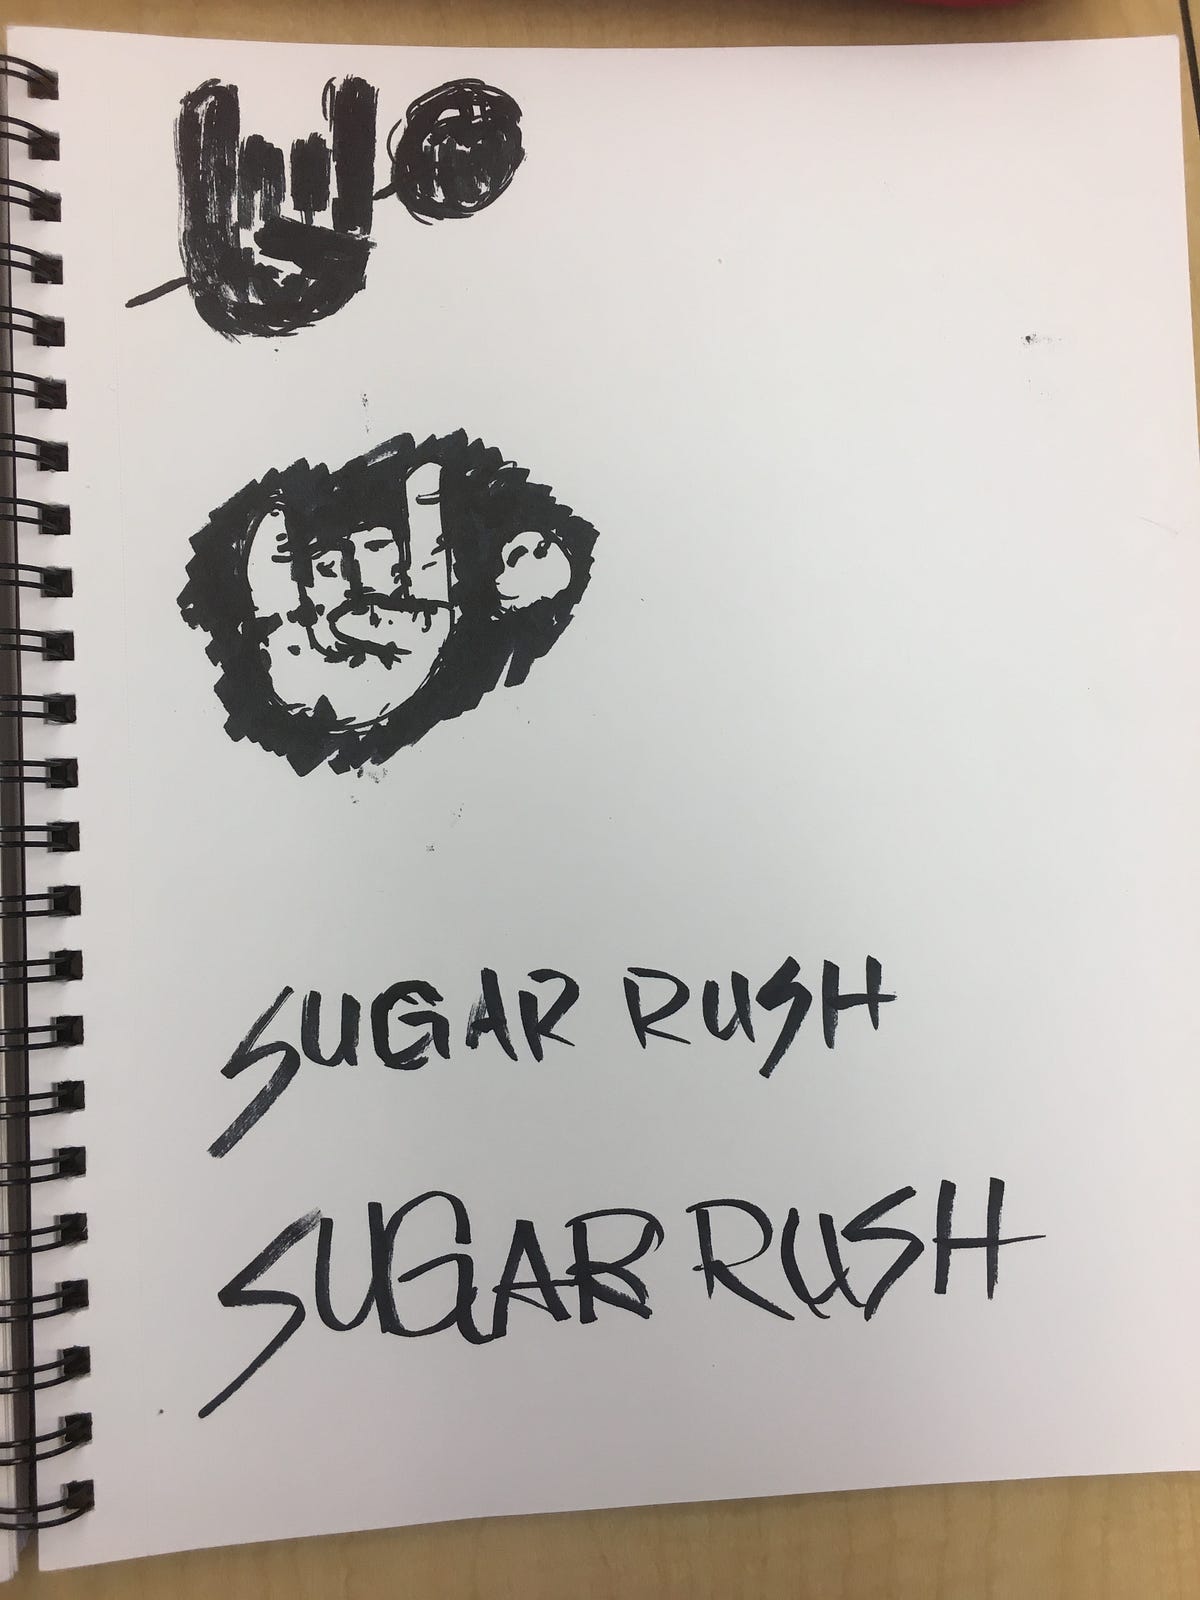 SUGAR RUSH
SUGAR RUSH